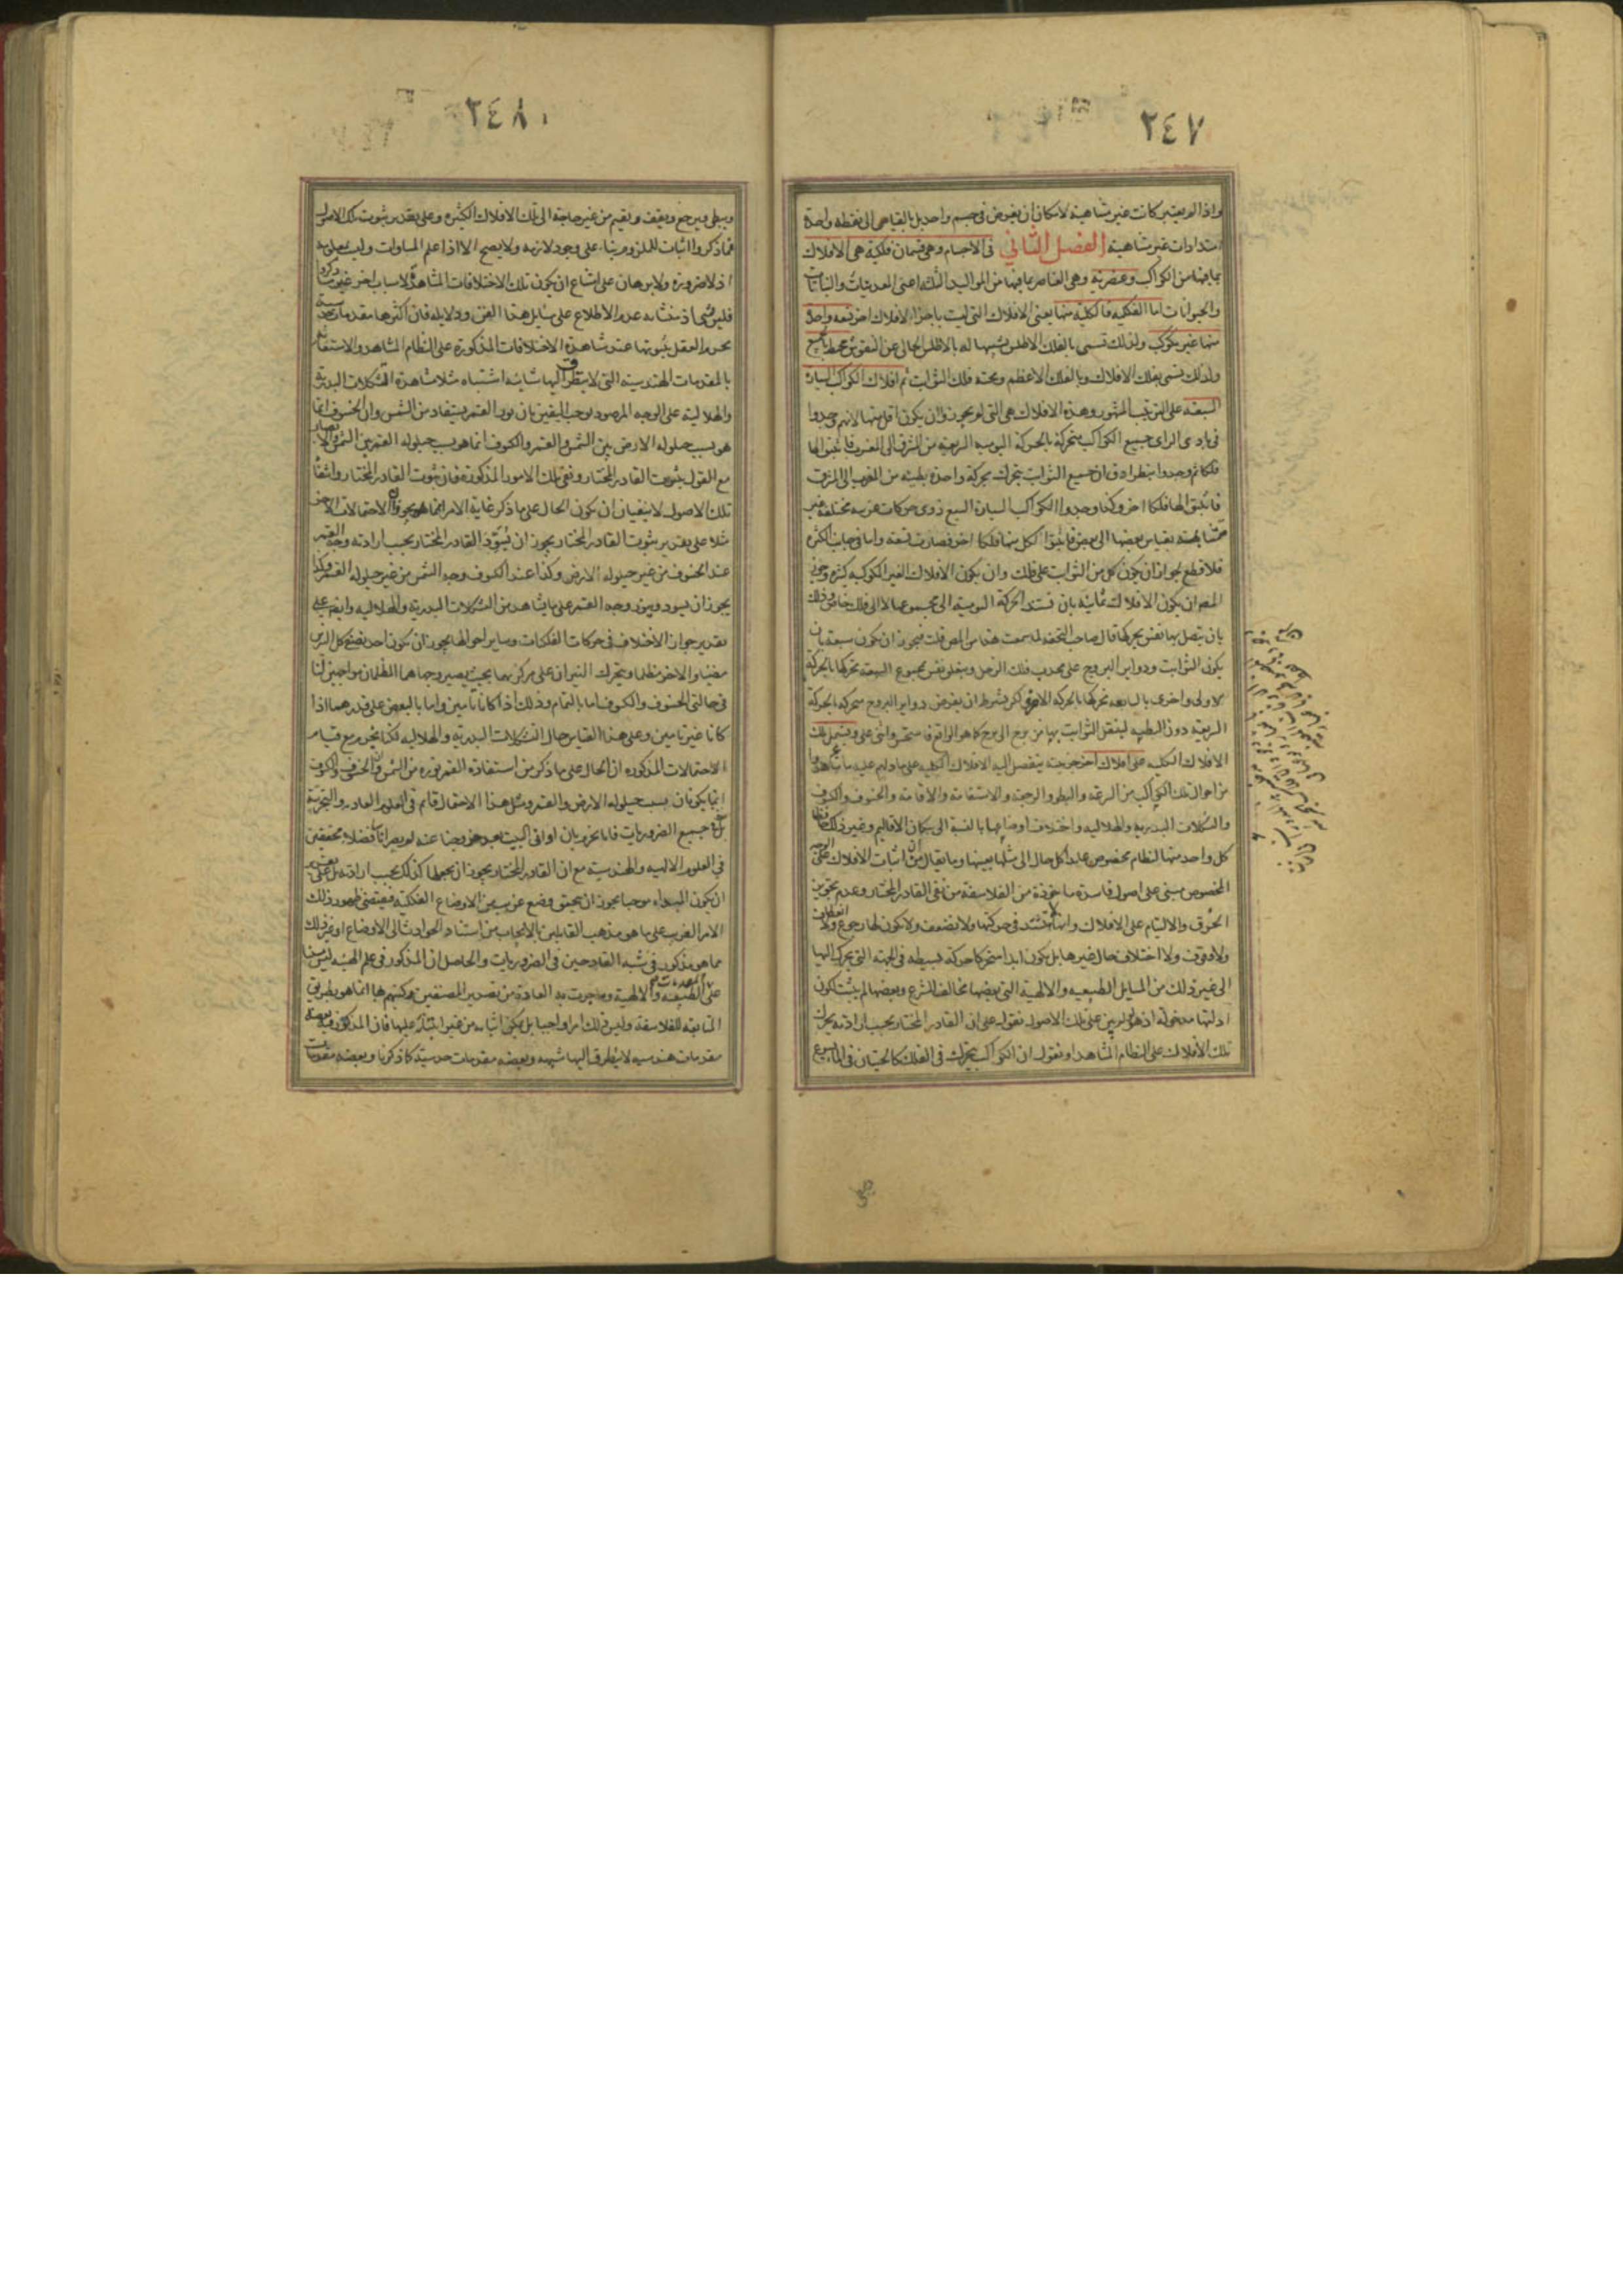 ٢٤٧
واذا لم يعتبر كانت غير متناهية لامكان ان يفرض في جسم واحد بل بالقياس الى نقطة واحدة
امتدادات غير متناهية الفصل الثاني في الاجسام وهي قسمان فلكية هي الافلاك
بما فيها من الكواكب وعنصرية وهي العناصر بما فيها من المواليد الثلثة اعني المعدنيات والنباتات
والحيوانات اما الفلكية فالكلية منها يعني الافلاك التي ليست باجزاء لافلاك اخر تسعة واحد
منها غير مكوكب ولذلك تسمى بالفلك الاطلس تشبيها له بالاطلس الخالي عن النقوش محيط بالجميع
ولذلك يسمى بفلك الافلاك وبالفلك الاعظم وتحته فلك الثوابت ثم افلاك الكواكب السيارة
السبعة على الترتيب المشهور وهذه الافلاك هي التي لم يجوزوا ان يكون اقل منها لانهم وجدوا
في بادى الراى جميع الكواكب متحركة بالحركة اليومية السريعة من المشرق الى المغرب فاثبتوا لها
فلكا ثم وجدوا بنظر ادق ان جميع الثوابت يتحرك بحركة واحدة بطيئة من المغرب الى المشرق
فاثبتوا لها فلكا اخر وكذا وجدوا الكواكب السيارة السبع ذوى حركات غريبة مختلفة غير
متشابهة بقياس بعضها الى بعض فاثبتوا لكل منها فلكا اخر فصارت تسعة واما في جانب الكثرة
فلا قطع لجواز ان يكون كل من الثوابت على فلك وان يكون الافلاك الغير المكوكبة كثيرة وجوز
المص ان يكون الافلاك ثمانية بان تستند الحركة اليومية الى مجموعها لا الى فلك خاص وذلك
بان يتصل بها نفس يحركها قال صاحب التحفة لما سمعت هذا من المص قلت فيجوز ان يكون سبعة بان
يكون الثوابت ودواير البروج على محدب فلك الزحل ويتعلق نفس بمجموع السبعة تحركها بالحركة
الاولى واخرى بالسابعة تحركها بالحركة الاخرى لكن بشرط ان يفرض دواير البروج متحركة بالحركة
السريعة دون البطيئة لينتقل الثوابت بها من برج الى برج كما هو الواقع فاستحسن واثنى على ويشتمل تلك
الافلاك الكلية على افلاك اخر جزئية ينفصل اليه الافلاك الكلية على ما دلهم عليه ما شاهدوا
من احوال تلك الكواكب من السرعة والبطو والرجعة والاستقامة والاقامة والخسوف والكسوف
والتشكلات البدرية والهلالية واختلاف اوضاعها بالنسبة الى سكان الاقاليم وغير ذلك
كل واحد منها لنظام مخصوص عايدا كل حال الى مثلها بعينها وما يقال من ان اثبات الافلاك على الوجه
المخصوص مبني على اصول فاسدة ماخوذة من الفلاسفة من نفى القادر المختار وعدم تجويز
الخرق والالتيام على الافلاك وانها لا تشتد في حركتها ولا تضعف ولا يكون لها رجوع ولا انعطاف
ولا وقوف ولا اختلاف حال غيرها بل يكون ابدا متحركا حركة بسيطة في الجهة التي يتحرك اليها
الى غير ذلك من المسايل الطبيعية والالهية التي بعضها مخالف للشرع وبعضها لم يثبت لكون
ادلتها مدخولة اذ لو لم يبن على تلك الاصول نقول على ان القادر المختار بحسب ارادته يحرك
تلك الافلاك على النظام المشاهد او نقول ان الكواكب تتحرك في الفلك كالحيتان في الماء تسرع
٢٤٨
ويبطى ويرجع ويقف ويقيم من غير حاجة الى تلك الافلاك الكثيرة وعلى تقدير ثبوت تلك الاصول
فما ذكروا اثبات للملزوم بناء على وجود لازمه ولا يصح الا اذا علم المساوات وليست بمعلومة
اذ لا ضرورة ولا برهان على امتناع ان يكون تلك الاختلافات المشاهدة لاسباب اخر غير ما ذكروا
فليس بشي اذ منشأه عدم الاطلاع على مسايل هذا الفن ودلايله فان اكثرها مقدمات حدسية
يجزم العقل بثبوتها عند مشاهدة الاختلافات المذكورة على النظام المشاهد والاستعانة
بالمقدمات الهندسية التي لا يتطرق اليها شائبة اشتباه مثلا مشاهدة التشكلات البدرية
والهلالية على الوجه المرصود يوجب اليقين بان نور القمر يستفاد من الشمس وان الخسوف انما
هو بسبب حيلولة الارض بين الشمس والقمر والكسوف انما هو بسبب حيلولة القمر بين الشمس والابصار
مع القول بثبوت القادر المختار ونفى تلك الامور المذكورة فان ثبوت القادر المختار وانتفاء
تلك الاصول لا ينفيان ان يكون الحال على ما ذكر غاية الامر انهما يجوزان الاحتمالات الاخر
مثلا على تقدير ثبوت القادر المختار يجوز ان يسود القادر المختار بحسب ارادته وجه القمر
عند الخسوف من غير حيلولة الارض وكذا عند الكسوف وجه الشمس من غير حيلولة القمر وكذا
يجوز ان يسود وينور وجه القمر على ما يشاهد من التشكلات البدرية والهلالية وايضا على
تقدير جواز الاختلاف في حركات الفلكيات وساير احوالها يجوز ان يكون احد نصفي كل النيرين
مضيئا والاخر مظلما ويتحرك النيران على مركزيهما بحيث يصير وجهاهما المظلمان مواجهين لنا
في حالتي الخسوف والكسوف اما بالتمام وذلك اذا كانا تامين واما بالبعض على قدرهما اذا
كانا غير تامين وعلى هذا القياس حال التشكلات البدرية والهلالية لكنا نجزم مع قيام
الاحتمالات المذكورة ان الحال على ما ذكر من استفادة القمر نوره من الشمس وان الخسوف والكسوف
انما يكونان بسبب حيلولة الارض والقمر ومثل هذا الاحتمال قائم في العلوم العادية والتجربية
بل في جميع الضروريات فانا نجزم بان اواني البيت بعد خروجنا عنه لم يصر اناسا فضلاء محققين
في العلوم الالهية والهندسية مع ان القادر المختار يجوز ان يجعلها كذلك بحسب ارادته بل على تقدير
ان يكون المبداء موجبا يجوز ان يتحقق وضع غريب من الاوضاع الفلكية فيقتضي ظهور ذلك
الامر الغريب على ما هو مذهب القايلين بالايجاب من استناد الحوادث الى الاوضاع او غير ذلك
مما هو مذكور في شبه القادحين في الضروريات والحاصل ان المذكور في علم الهيئة ليس مبنيا
على المقدمات الطبيعية والالهية وما جرت به العادة من تصدير المصنفين كتبهم بها انما هو بطريق
المتابعة للفلاسفة وليس ذلك امرا واجبا بل يمكن اثباته من غير ابتناء عليها فان المذكور فيه بعضه
مقدمات هندسية لا يتطرق اليها شبهة وبعضه مقدمات حدسية كما ذكرنا وبعضه مقدمات